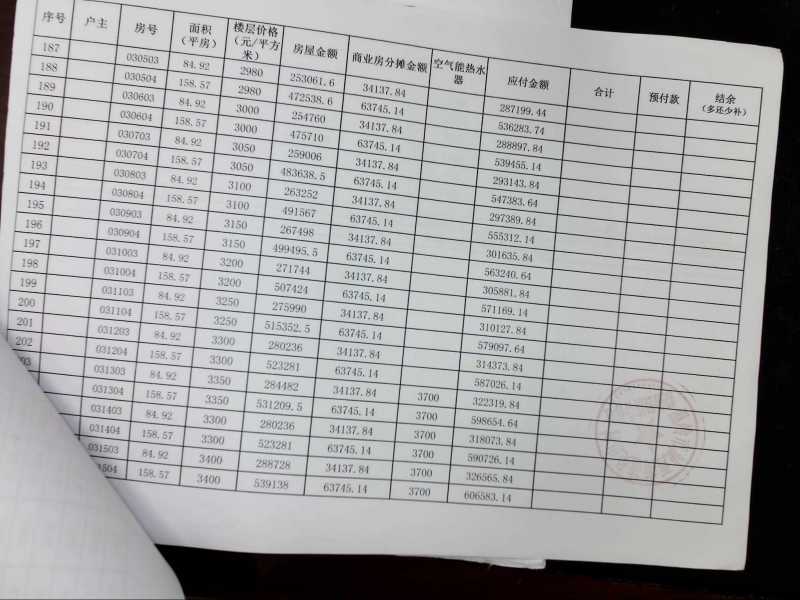 序号 户主 房号 面积（平房） 楼层价格（元/平方米） 房屋金额 商业房分摊金额 空气能热水器 应付金额 合计 预付款 结余（多还少补）
187 030503 84.92 2980 253061.6 34137.84 287199.44
188 030504 158.57 2980 472538.6 63745.14 536283.74
189 030603 84.92 3000 254760 34137.84 288897.84
190 030604 158.57 3000 475710 63745.14 539455.14
191 030703 84.92 3050 259006 34137.84 293143.84
192 030704 158.57 3050 483638.5 63745.14 547383.64
193 030803 84.92 3100 263252 34137.84 297389.84
194 030804 158.57 3100 491567 63745.14 555312.14
195 030903 84.92 3150 267498 34137.84 301635.84
196 030904 158.57 3150 499495.5 63745.14 563240.64
197 031003 84.92 3200 271744 34137.84 305881.84
198 031004 158.57 3200 507424 63745.14 571169.14
199 031103 84.92 3250 275990 34137.84 310127.84
200 031104 158.57 3250 515352.5 63745.14 579097.64
201 031203 84.92 3300 280236 34137.84 314373.84
202 031204 158.57 3300 523281 63745.14 587026.14
03 031303 84.92 3350 284482 34137.84 3700 322319.84
031304 158.57 3350 531209.5 63745.14 3700 598654.64
031403 84.92 3300 280236 34137.84 3700 318073.84
031404 158.57 3300 523281 63745.14 3700 590726.14
031503 84.92 3400 288728 34137.84 3700 326565.84
1504 158.57 3400 539138 63745.14 3700 606583.14